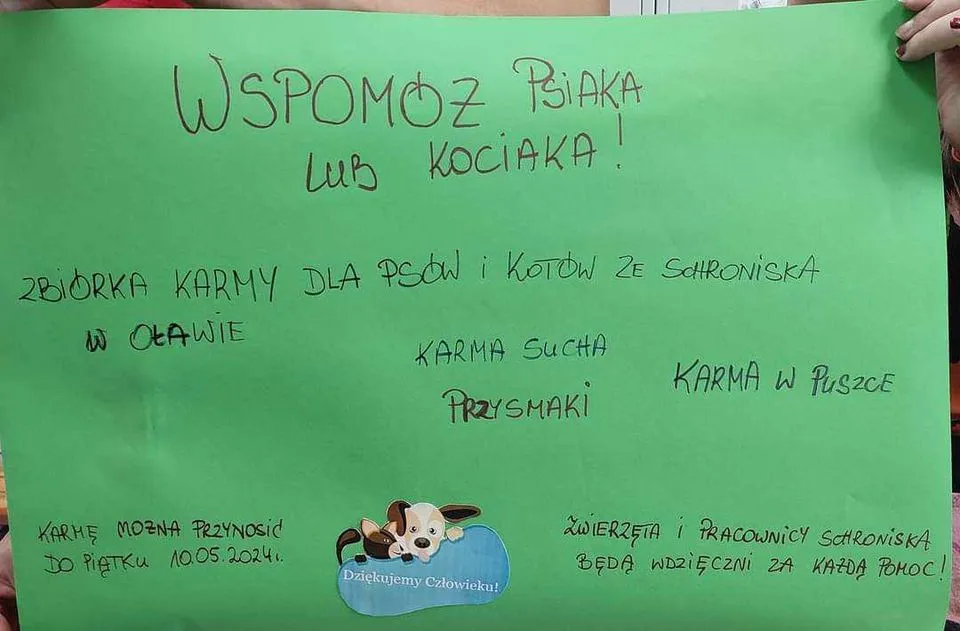 WSPOMÓŻ PSIAKA
LUB KOCIAKA!
ZBIÓRKA KARMY DLA PSÓW i KOTÓW ZE SCHRONISKA
W OŁAWIE
KARMA SUCHA
KARMA W PUSZCE
PRZYSMAKI
KARMĘ MOŻNA PRZYNOSIĆ
DO PIĄTKU 10.05.2024r.
Dziękujemy Człowieku!
ZWIERZĘTA i PRACOWNICY SCHRONISKA
BĘDĄ WDZIĘCZNI ZA KAŻDĄ POMOC!